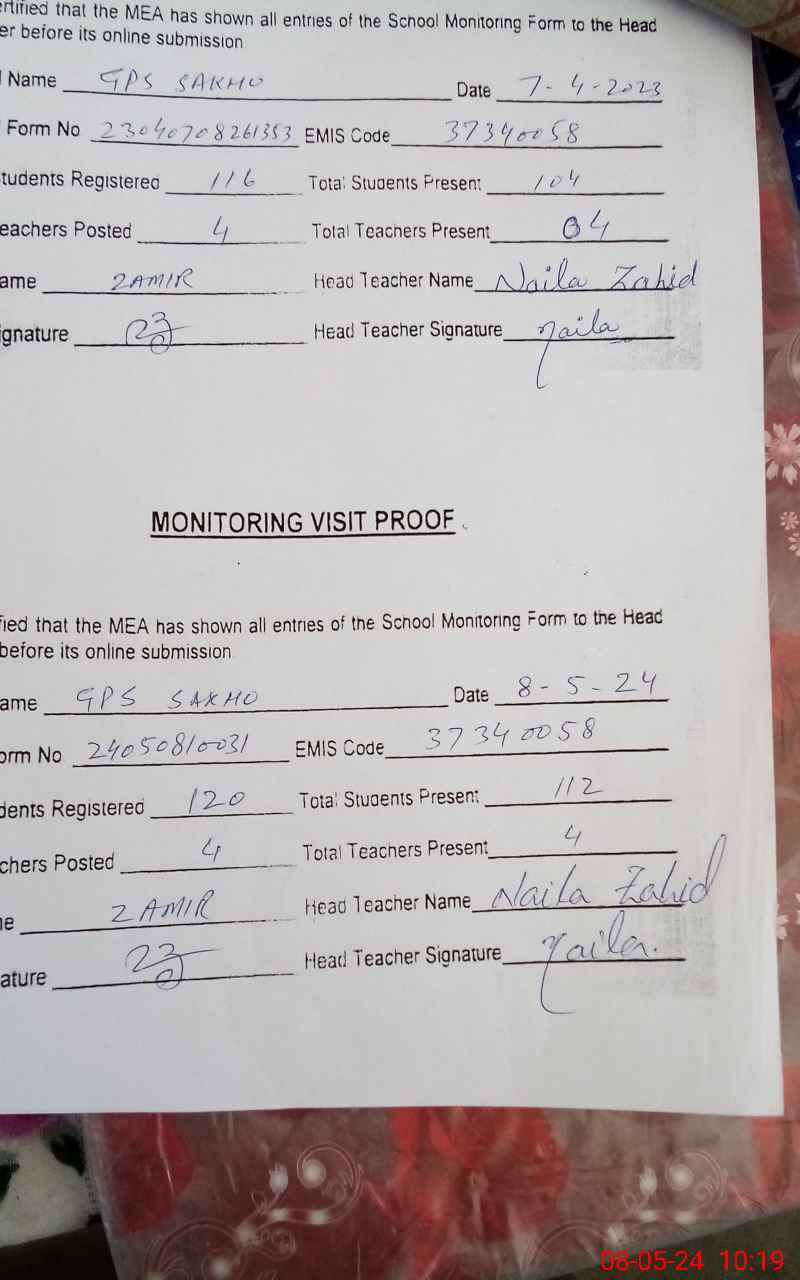 ertified that the MEA has shown all entries of the School Monitoring Form to the Head
er before its online submission
Name GPS SAKHO Date 7-4-2023
Form No 23040708261353 EMIS Code 37340058
tudents Registered 116 Total Students Present 104
eachers Posted 4 Total Teachers Present 04
ame ZAMIR Head Teacher Name Naila Zahid
ignature Head Teacher Signature Naila
MONITORING VISIT PROOF
fied that the MEA has shown all entries of the School Monitoring Form to the Head
before its online submission
ame GPS SAKHO Date 8-5-24
orm No 24050810031 EMIS Code 37340058
dents Registered 120 Total Students Present 112
chers Posted 4 Total Teachers Present 4
ne ZAMIR Head Teacher Name Naila Zahid
ature Head Teacher Signature Naila.
08-05-24 10:19